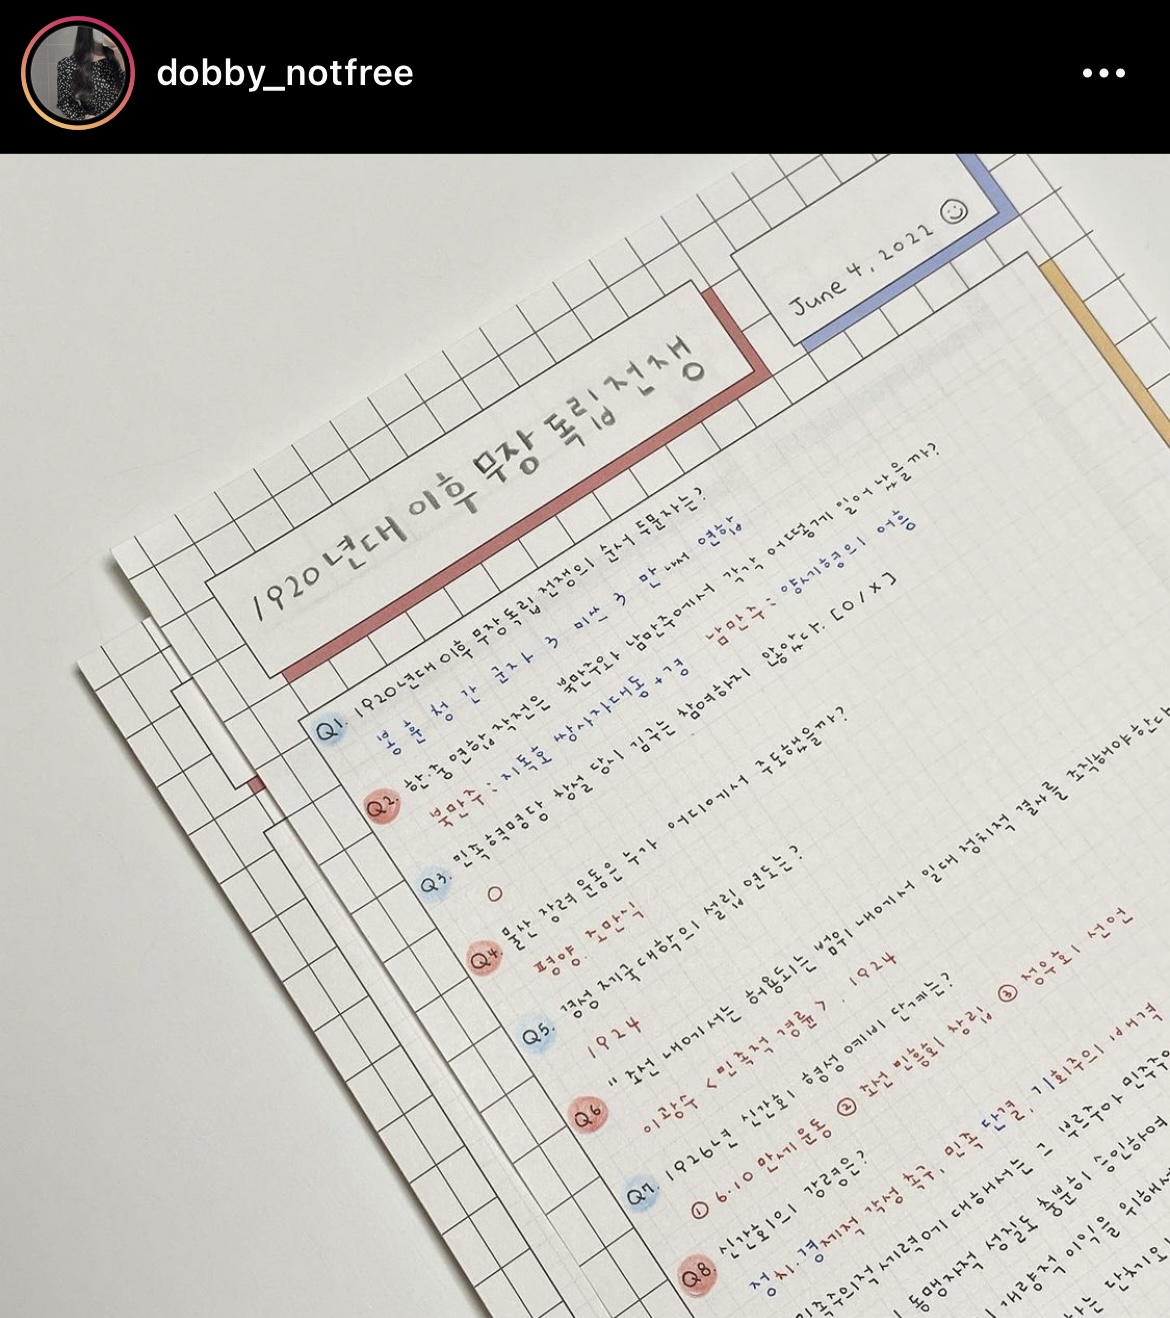 dobby_notfree
June 4, 2022
1920년대 이후 무장 독립 전쟁
Q1. 1920년대 이후 무장 독립 전쟁의 순서 두문자는?
봉 훈 청 간 군자 3 미쓰 3 만 내 연합
Q2. 한·중 연합 작전은 북만주와 남만주에서 각각 어떻게 일어났을까?
북만주 : 지독호 쌍사자대동+경 남만주 : 양세형의 어흥
Q3. 민족혁명당 창설 당시 김구는 참여하지 않았다. [O/X]
O
Q4. 물산 장려 운동은 누가 어디에서 주도했을까?
평양. 조만식
Q5. 경성 제국대학의 설립 연도는?
1924
Q6. "조선 내에서는 허용되는 범위 내에서 일대 정치적 결사를 조직해야한다
이광수 <민족적 경륜>. 1924
Q7. 1926년 신간회 형성 예비 단계는?
① 6·10 만세 운동 ② 조선 민흥회 창립 ③ 정우회 선언
Q8. 신간회의 강령은?
정치.경제적 각성 촉구, 민족 단결, 기회주의 배격
민족주의적 세력이기 대해서는 그 부르주아 민주주
동맹자적 성질도 충분히 승인하여
대량적 이익을 위해서